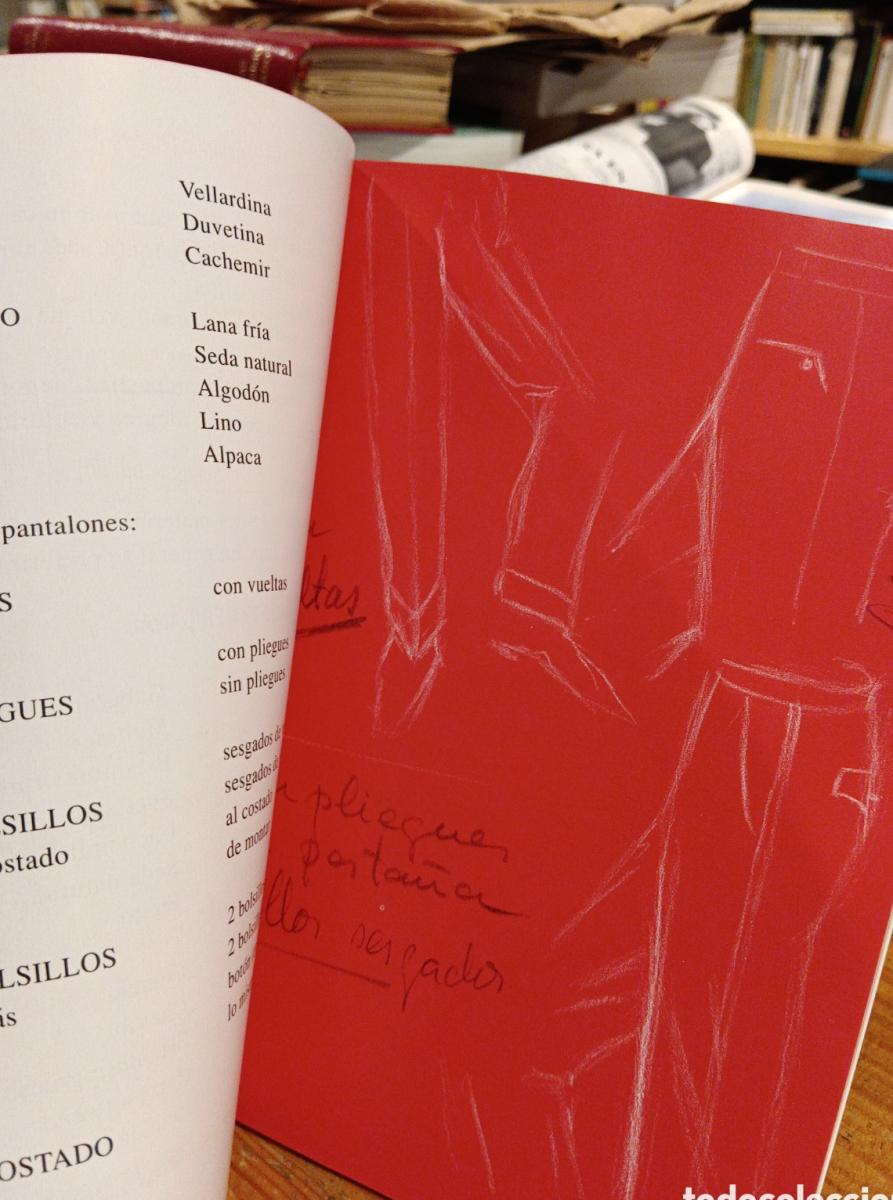 Vellardina
Duvetina
Cachemir
O
Lana fría
Seda natural
Algodón
Lino
Alpaca
pantalones:
S
con vueltas
con pliegues
sin pliegues
GUES
sesgados
sesgados
al costado
de montar
SILLOS
ostado
2 bolsill
2 bols
botón
lo mis
LSILLOS
ás
OSTADO
ltas
n pliegues
pestaña
llos sesgados
todocoleccio